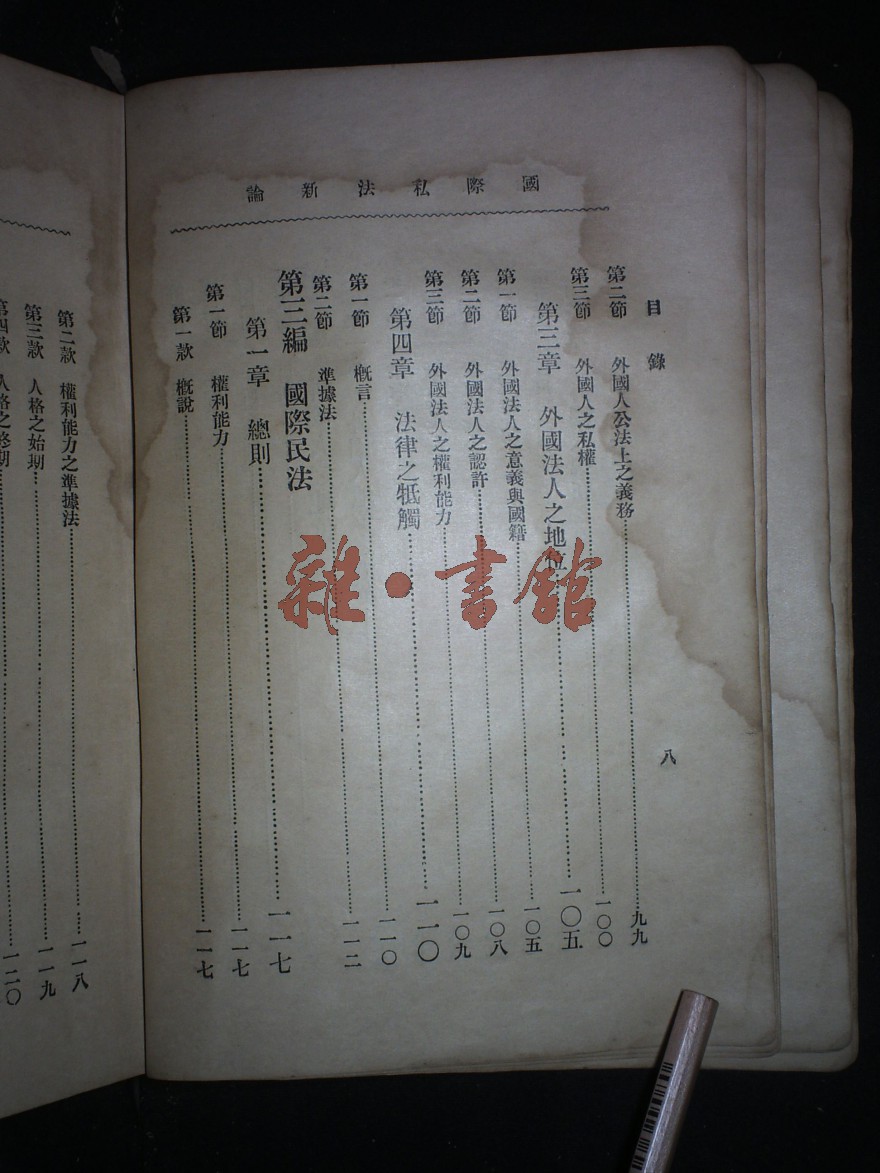 國際私法新論
目錄
八
第二節 外國人公法上之義務……九九
第三節 外國人之私權……一〇〇
第三章 外國法人之地位……一〇五
第一節 外國法人之意義與國籍……一〇五
第二節 外國法人之認許……一〇八
第三節 外國法人之權利能力……一〇九
第四章 法律之牴觸……一一〇
第一節 概言……一一〇
第二節 準據法……一一二
第三編 國際民法
第一章 總則……一一七
第一節 權利能力……一一七
第一款 概說……一一七
第二款 權利能力之準據法……一一八
第三款 人格之始期……一一九
第四款 人格之終期……一二〇
雜·書館